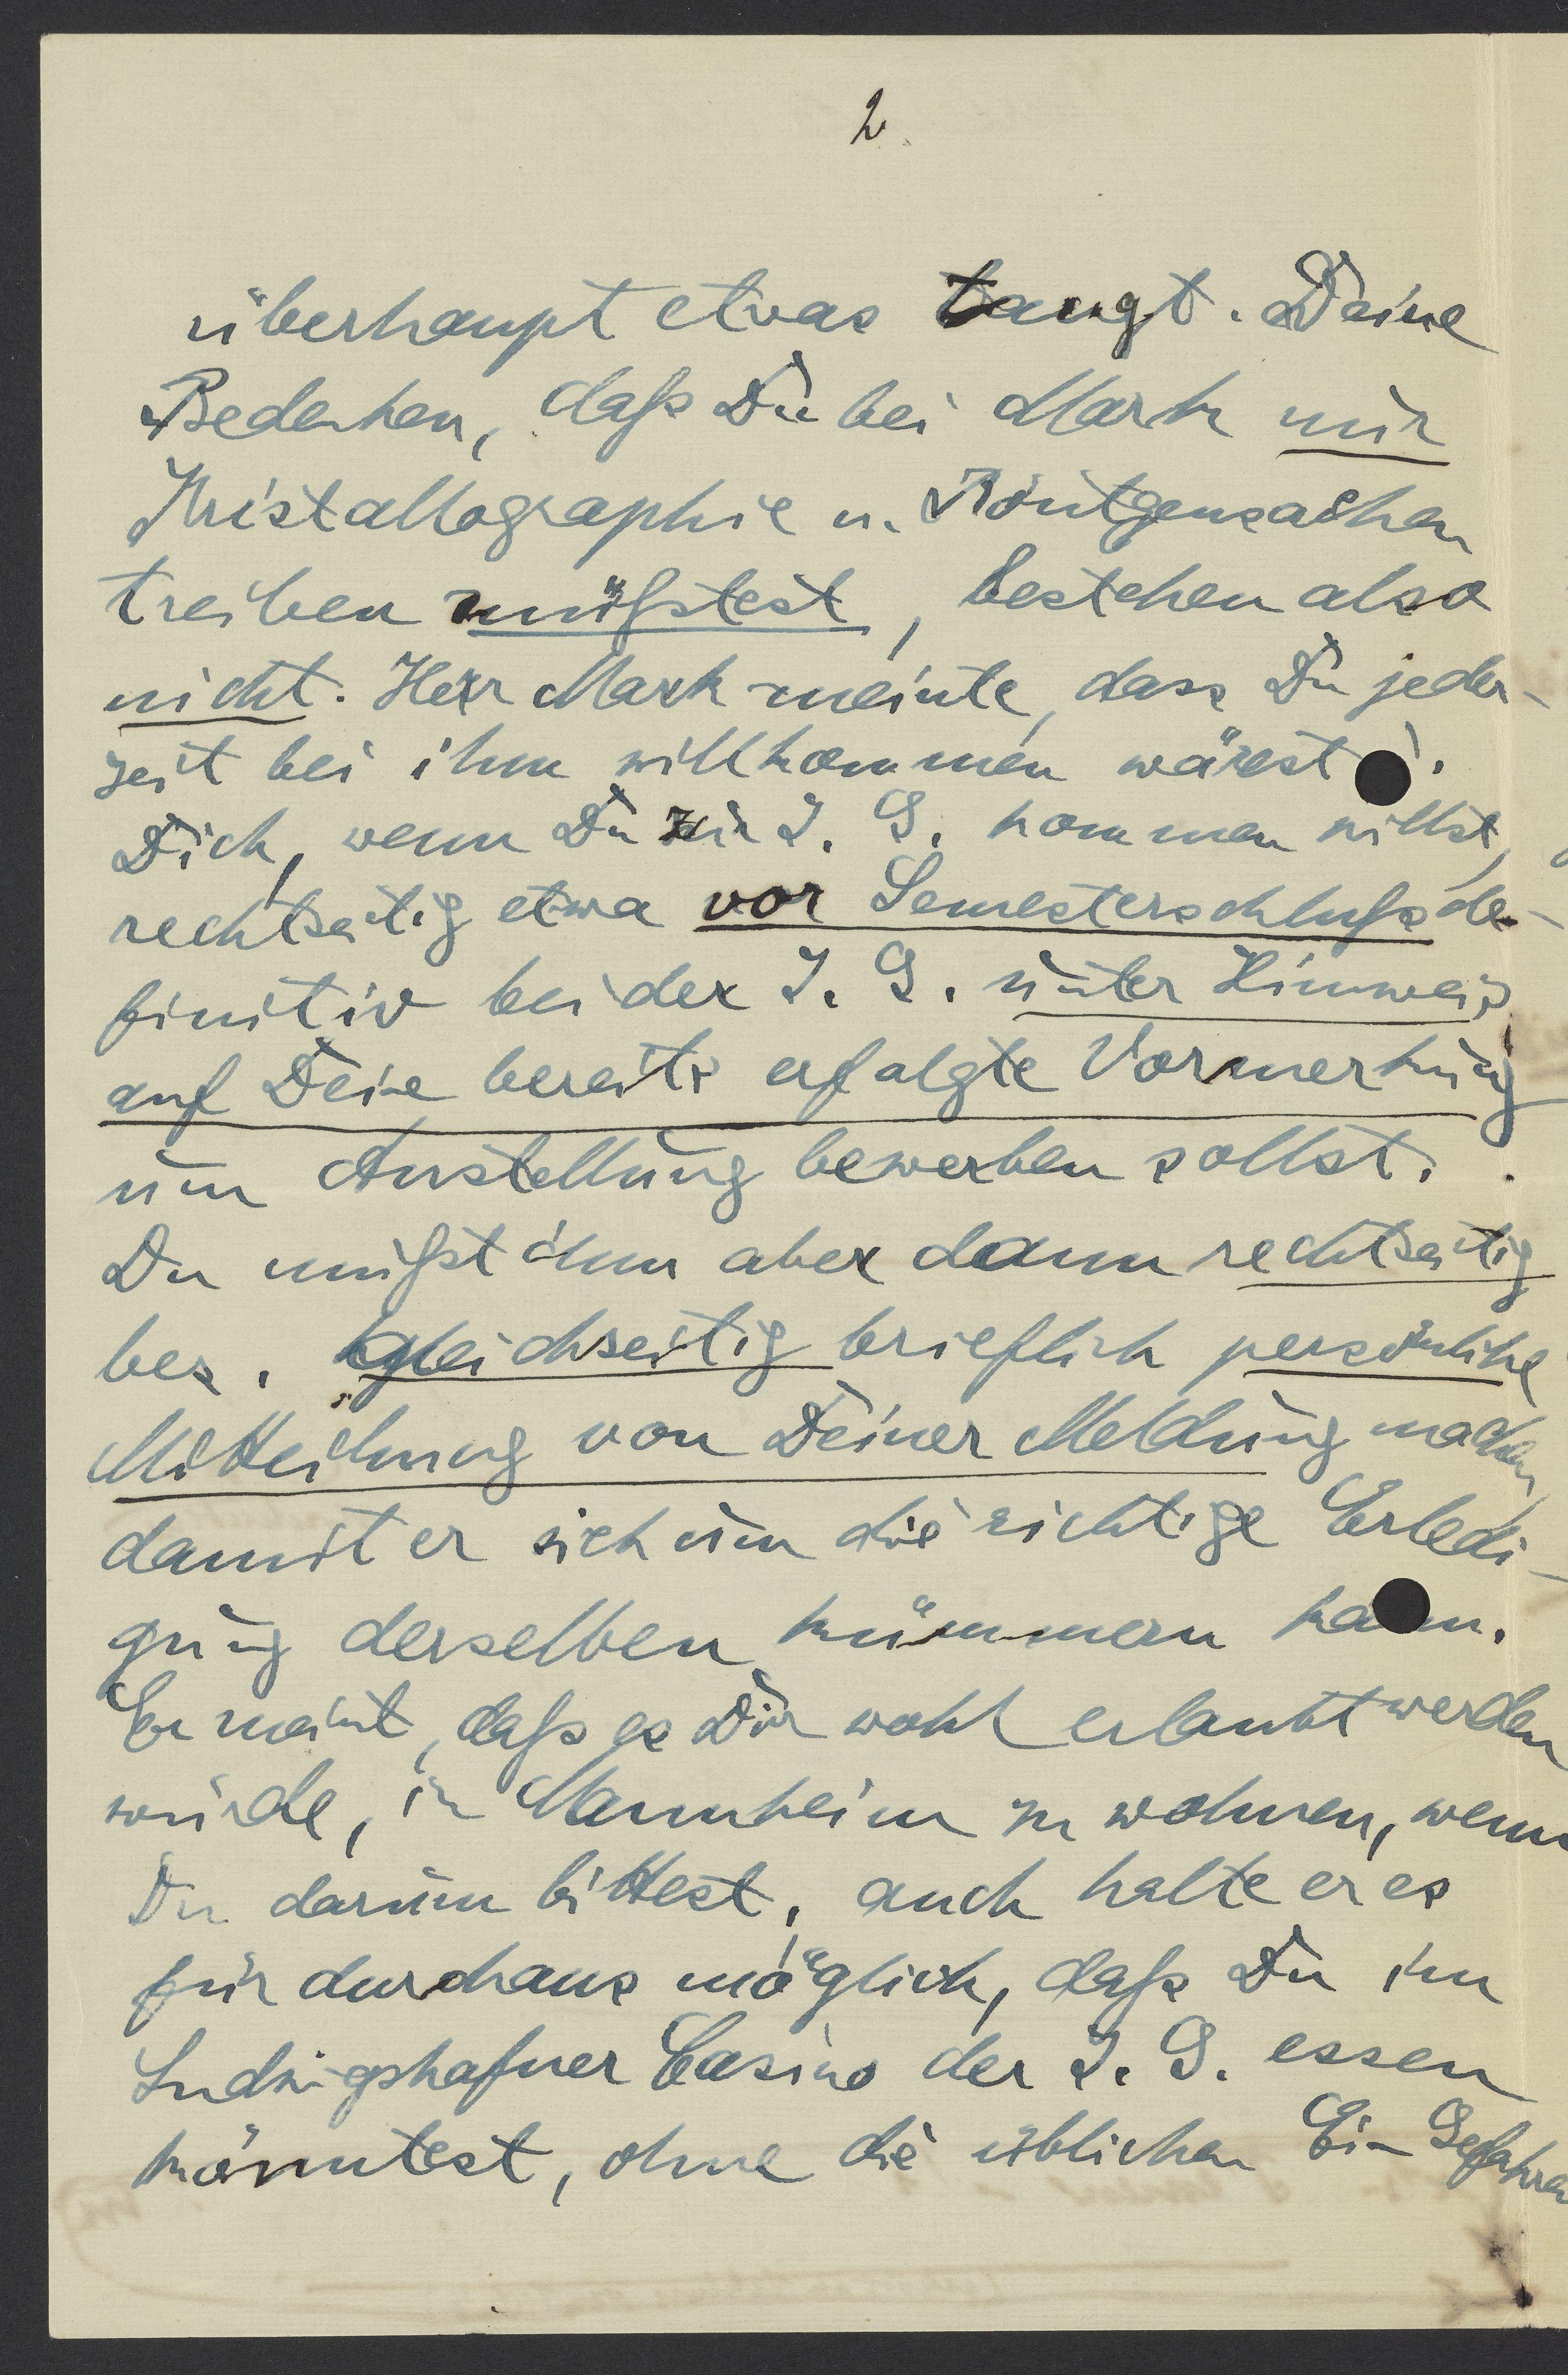 2
überhaupt etwas taugt. Deine
Bedenken, daß Du bei Mark nur
Kristallographie u. Röntgensachen
treiben müßtest, bestehen also
nicht. Herr Mark meinte, dass Du jeder-
zeit bei ihm willkommen wärest.
Dich, wenn Du zur I. G. kommen willst,
rechtzeitig etwa vor Semesterschluß de-
finitiv bei der I. G. unter Hinweis
auf Deine bereits erfolgte Vormerkung
um Anstellung bewerben sollst.
Du mußt ihm aber dann rechtzeitig
bez. gleichzeitig brieflich persönliche
Mitteilung von Deiner Meldung machen,
damit er sich um die richtige Erledi-
gung derselben kümmern kann.
Er meint, daß es Dir wohl erlaubt werden
würde, in Mannheim zu wohnen, wenn
Du darum bittest, auch halte er es
für durchaus möglich, daß Du im
Ludwigshafner Casino der I. G. essen
könntest, ohne die üblichen